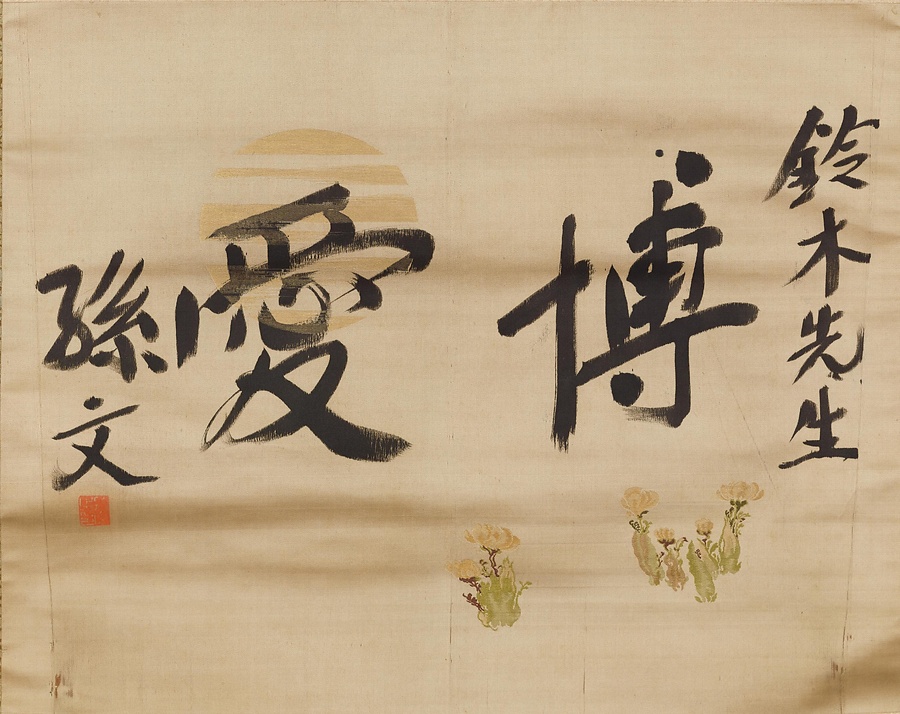 鈴木先生
博愛
孫文